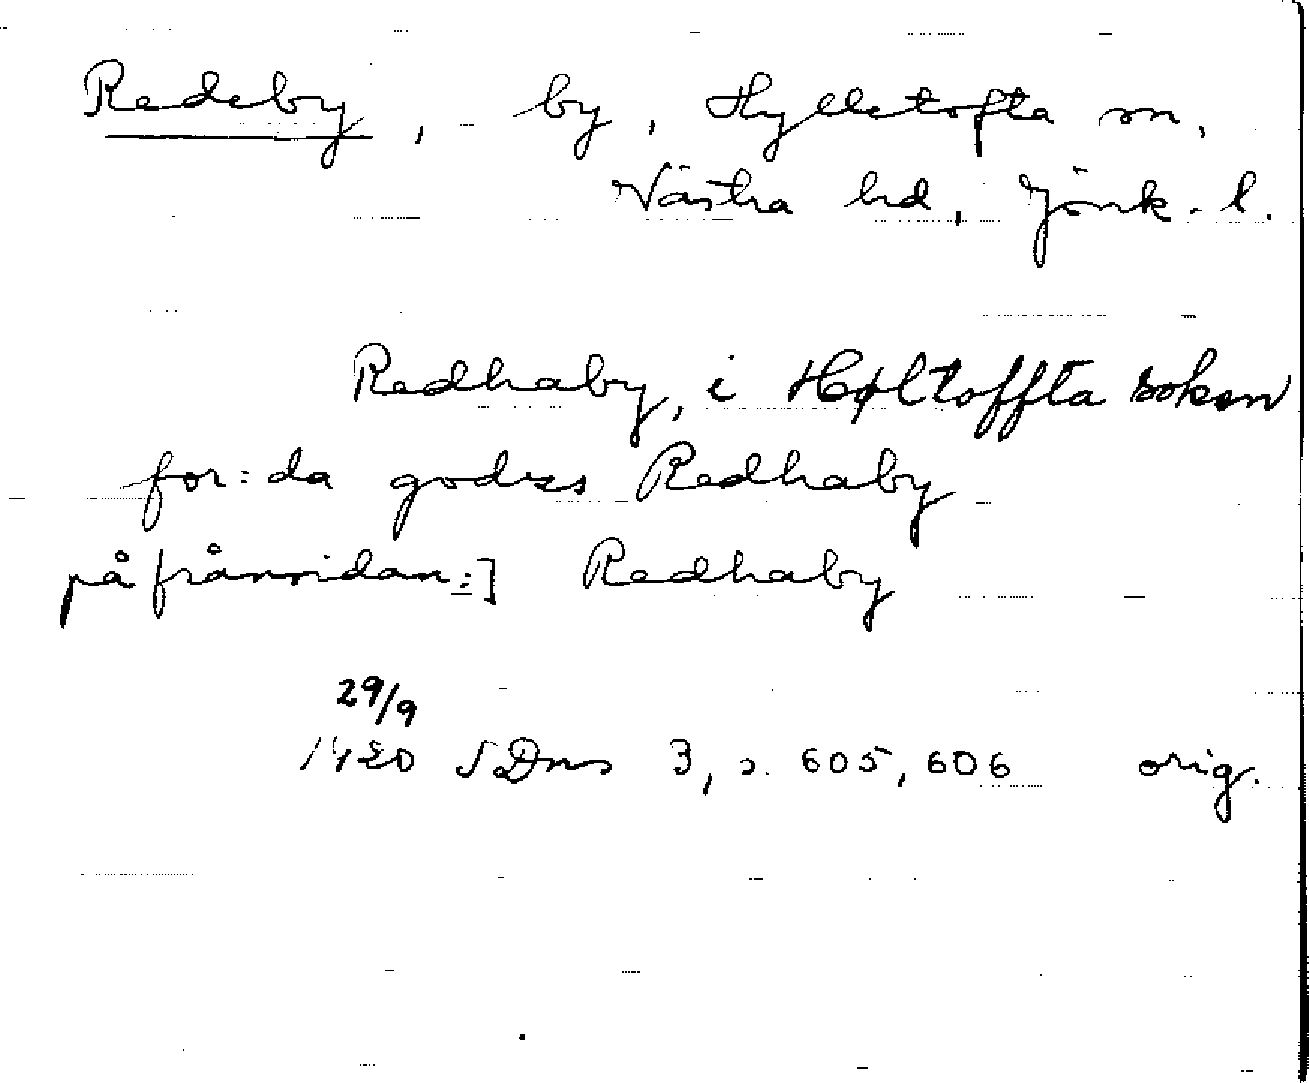 Redeby, by, Hylletofta sn,
Västra hd, Jönk. l.
Redhaby, i Høltoffta soken
for:da godzs Redhaby
på frånsidan:] Redhaby
29/9
1420 SDns 3, s. 605, 606 orig.